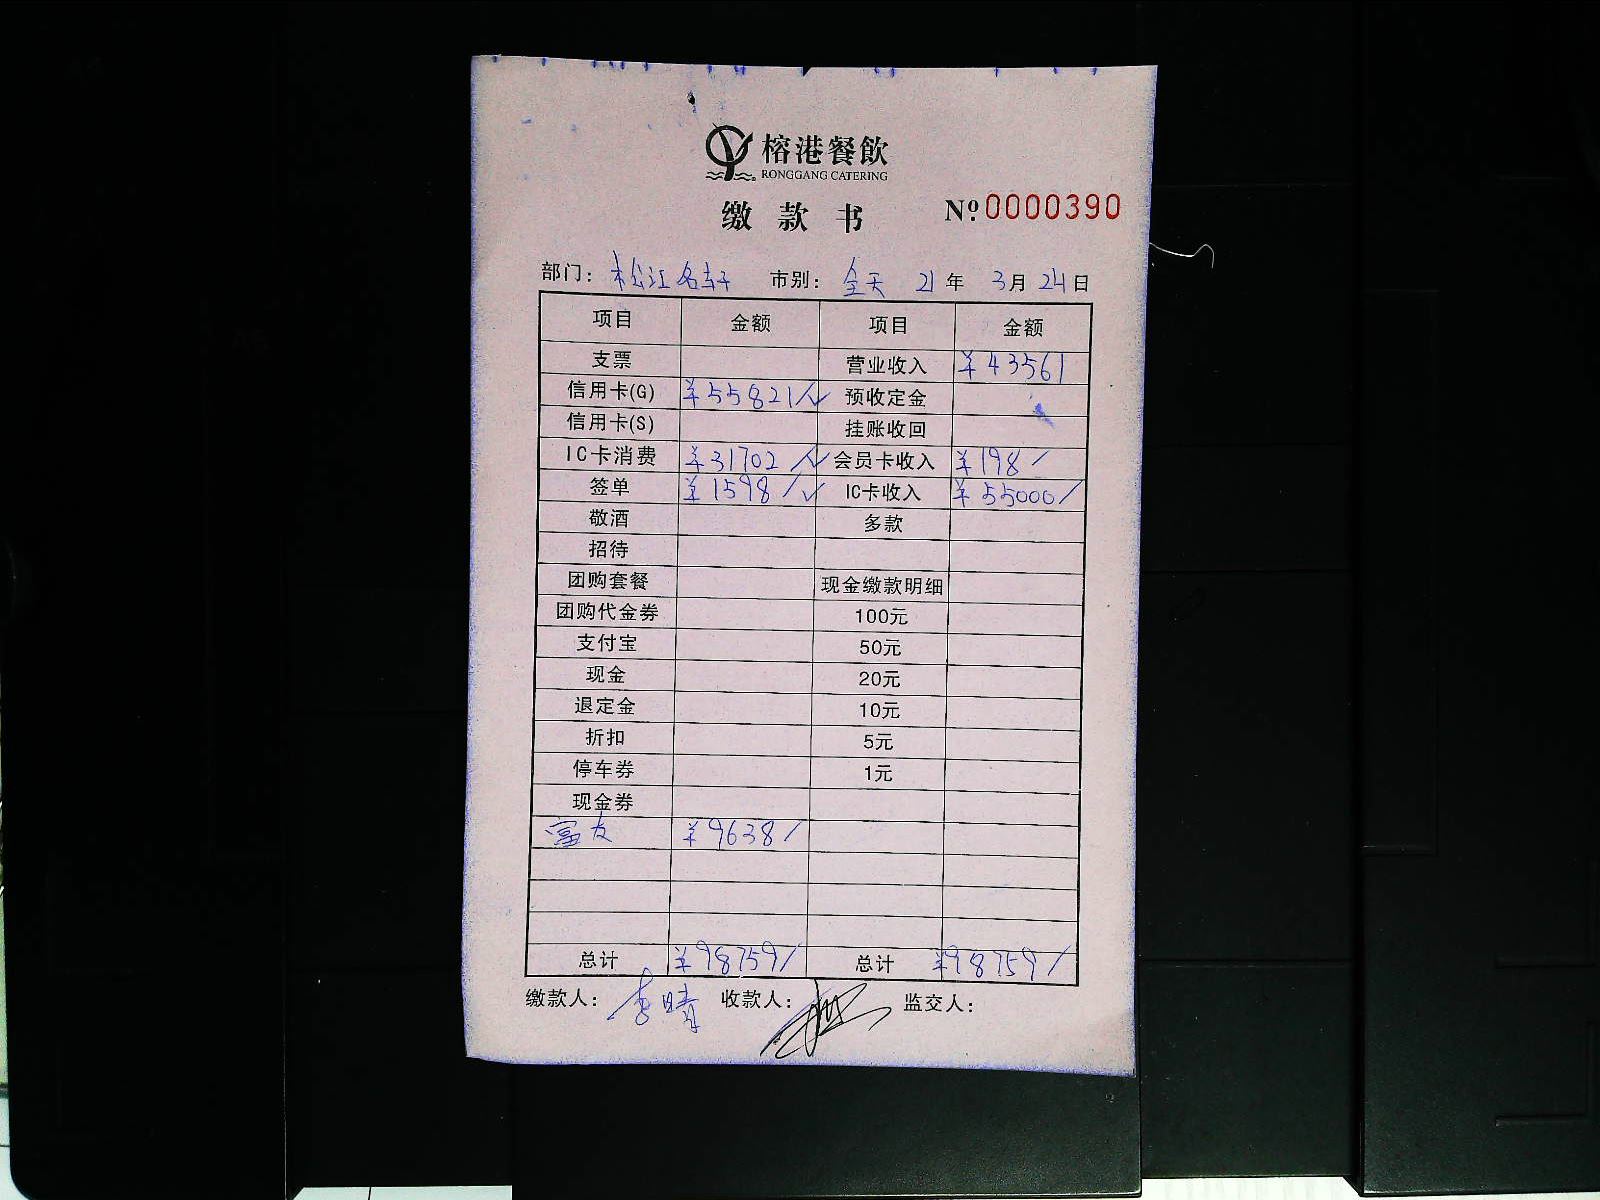 榕港餐飲
RONGGANG CATERING
缴款书 Nº 0000390
部门: 松江名轩 市别: 全天 21年 3月24日
项目 金额 项目 金额
支票 营业收入 ¥43561
信用卡(G) ¥55821/✓ 预收定金
信用卡(S) 挂账收回
IC卡消费 ¥31702/✓ 会员卡收入 ¥198/
签单 ¥1598/✓ IC卡收入 ¥55000/
敬酒 多款
招待
团购套餐 现金缴款明细
团购代金券 100元
支付宝 50元
现金 20元
退定金 10元
折扣 5元
停车券 1元
现金券
富友 ¥9638/
总计 ¥98759/ 总计 ¥98759/
缴款人: 李晴 收款人: 监交人: